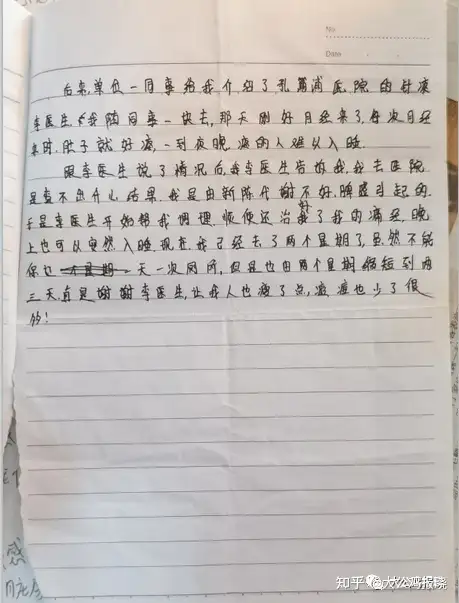 No
Date
后来，单位一同事给我介绍了乳山浦医院的针灸
李医生，我随同事一块去，那天刚好月经来了，每次月经
来时，肚子就好痛，一到夜晚，痛的人难以入睡
跟李医生说了情况后，李医生告诉我，我去医院
是查不出什么结果，我是由新陈代谢不好，脾虚引起的，
于是李医生开始帮我调理，顺便还治好了我的痛经，晚
上也可以安然入睡，现在，我已经去了两个星期了，虽然不能
保也一天一次网所，但是也由两个星期缩短到两
三天，真是谢谢李医生，让我人也瘦了点，痘痘也少了很
多！
感
知乎 大公鸡报晓